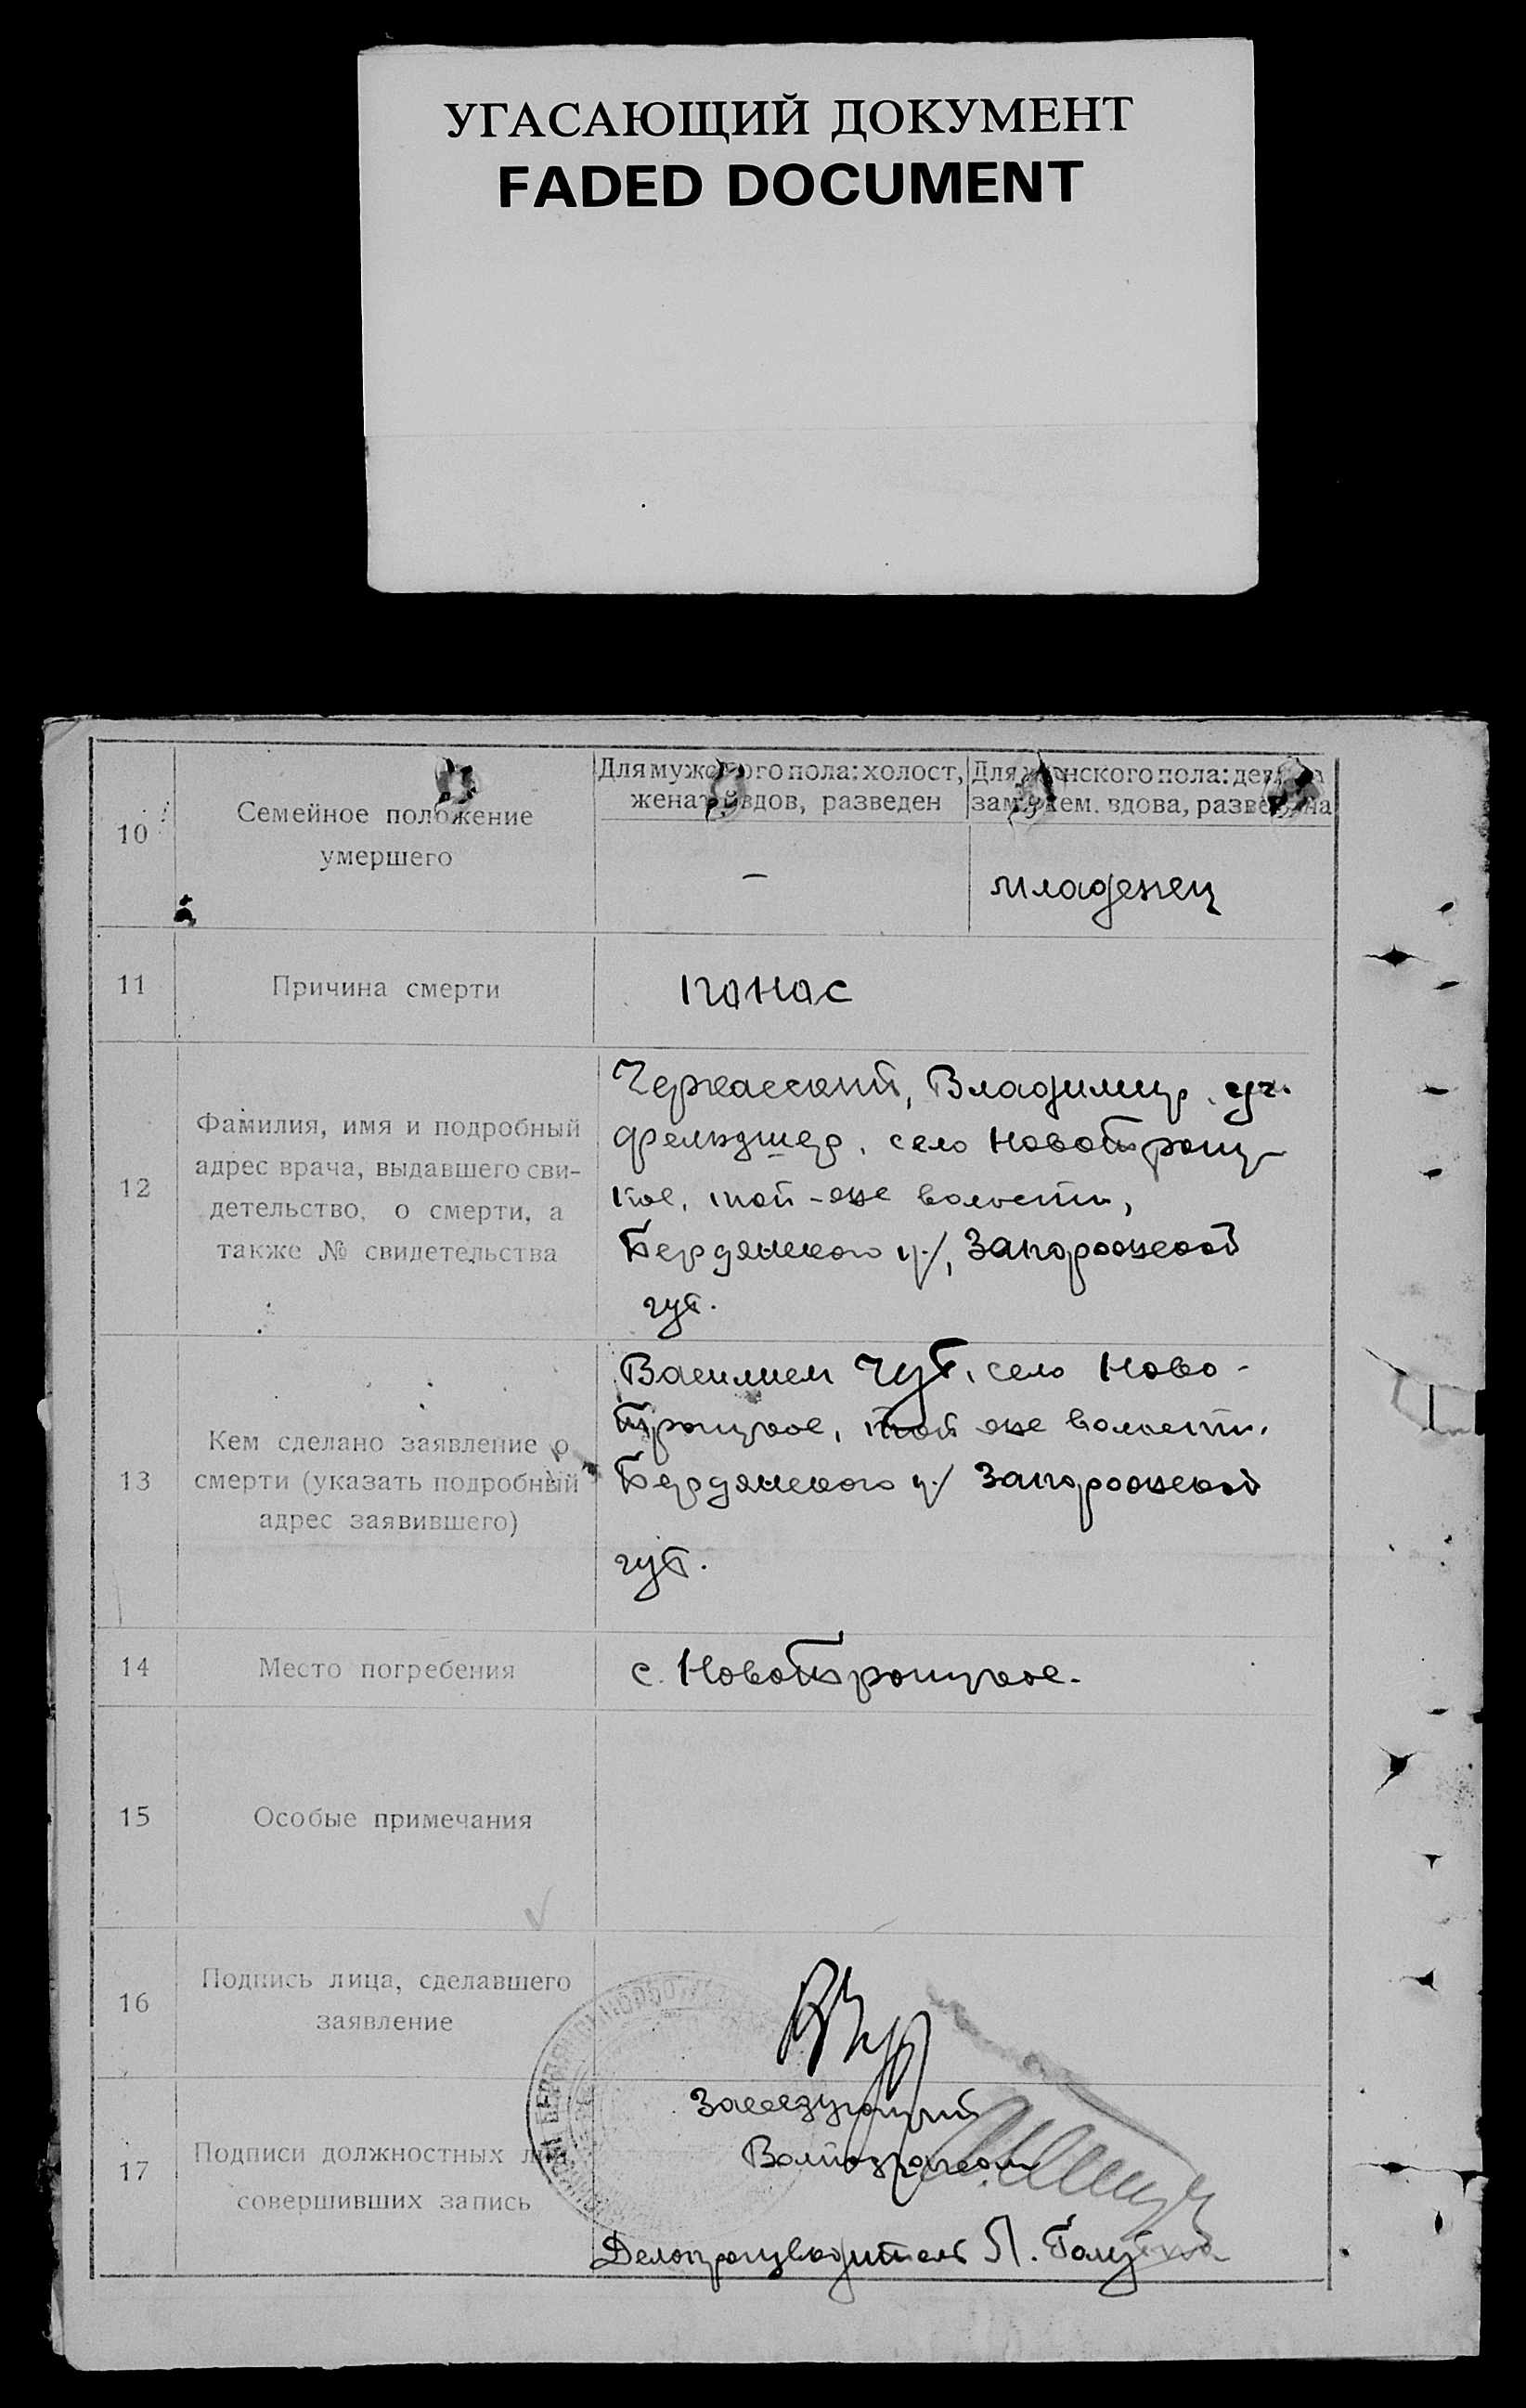 УГАСАЮЩИЙ ДОКУМЕНТ
FADED DOCUMENT
10
Семейное положение
умершего
Для мужского пола: холост,
женат, вдов, разведен
Для женского пола: девица
замужем. вдова, разведена
—
младенец
11
Причина смерти
12
Фамилия, имя и подробный
адрес врача, выдавшего сви-
детельство, о смерти, а
также № свидетельства
Черкасский, Владимир, уч.
фельдшер, село Новотроиц-
кое, той-же волости,
Бердянского у/, Запорожской
губ.
13
Кем сделано заявление о
смерти (указать подробный
адрес заявившего)
Василием Чуб, село Ново-
троицкое, той же волости,
Бердянского у/ Запорожской
губ.
14
Место погребения
с. Новотроицкое.
15
Особые примечания
16
Подпись лица, сделавшего
заявление
17
Подписи должностных лиц,
совершивших запись
Заведующий
Делопроизводитель П.